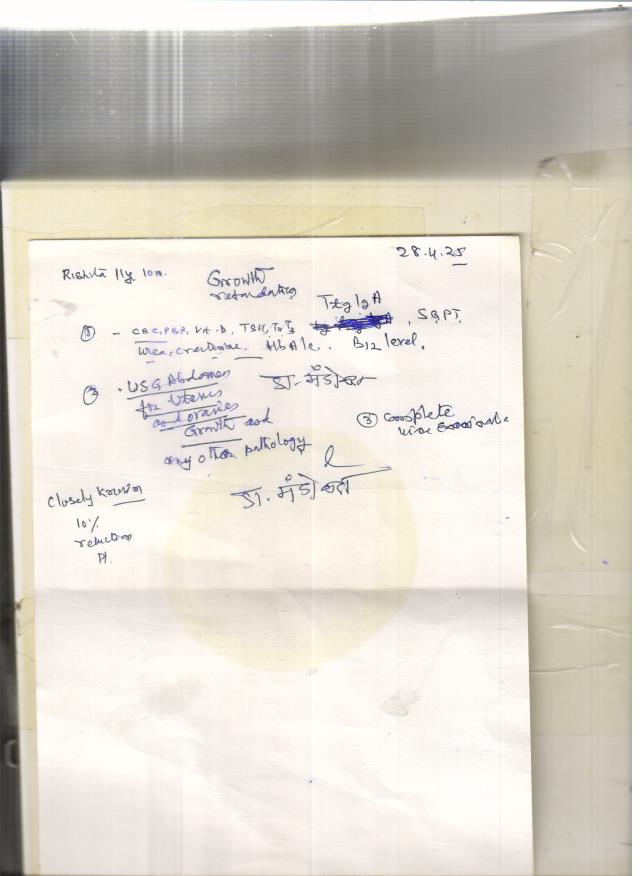 28.4.25
Rishita 11y 10m.
Growth
retardation
TtgIgA
① - CBC, PBF, Vit-D, TSH, T4T3, SGPT,
Urea, creatinine. HbA1c. B12 level.
② . USG Abdomen
for Uterus
and ovaries
Growth and
any other pathology
डा. मंडोवरा
③ complete
urine
डा. मंडोवरा
Closely known
10%
reduction
Pl.